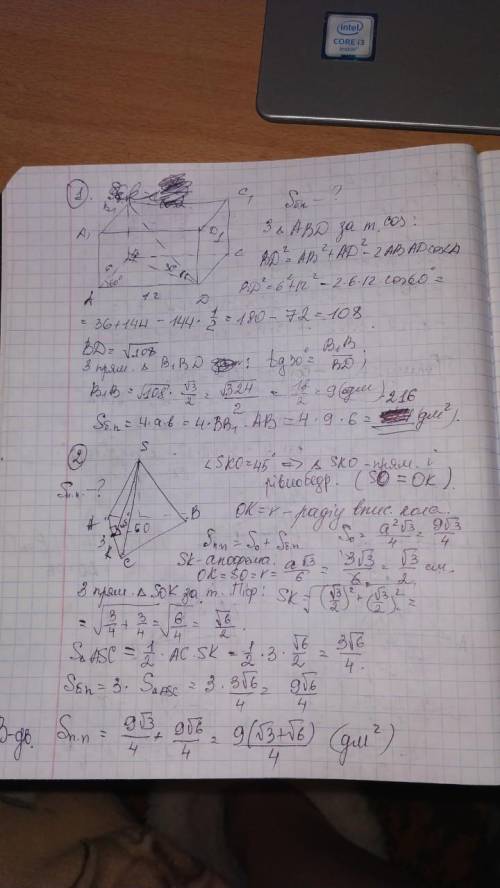 intel
CORE i3
inside
1.
B₁
C₁
A₁
D₁
C
6
60°
30°
A
12
D
Sбп - ?
З ΔABD за т. cos:
BD² = AB² + AD² - 2AB·AD·cosA
BD² = 6² + 12² - 2·6·12·cos60° =
= 36 + 144 - 144·1/2 = 180 - 72 = 108
BD = √108
З прям. Δ B₁BD : tg30° = B₁B/BD ;
B₁B = √108 · √3/2 = √324/2 = 18/2 = 9(дм)
Sб.п = 4·a·b = 4·BB₁·AB = 4·9·6 = 216 (дм²).
2
S
Sп.п - ?
A
B
C
K
3
45°
60
∠SKO = 45° => Δ SKO - прям. і
рівнобедр. (SO = OK).
OK = r - радіус впис. кола.
Sп.п = So + Sб.п.
So = a²√3/4 = 9√3/4
SK - апофема.
OK = SO = r = a√3/6 = 3√3/6 = √3/2 см.
З прям. Δ SOK за т. Піф: SK = √(√3/2)² + (√3/2)² =
= √3/4 + 3/4 = √6/4 = √6/2.
SΔASC = 1/2 · AC · SK = 1/2 · 3 · √6/2 = 3√6/4.
Sб.п = 3 · SΔASC = 3 · 3√6/4 = 9√6/4
В-дь.
Sп.п = 9√3/4 + 9√6/4 = 9(√3+√6)/4 (дм²)